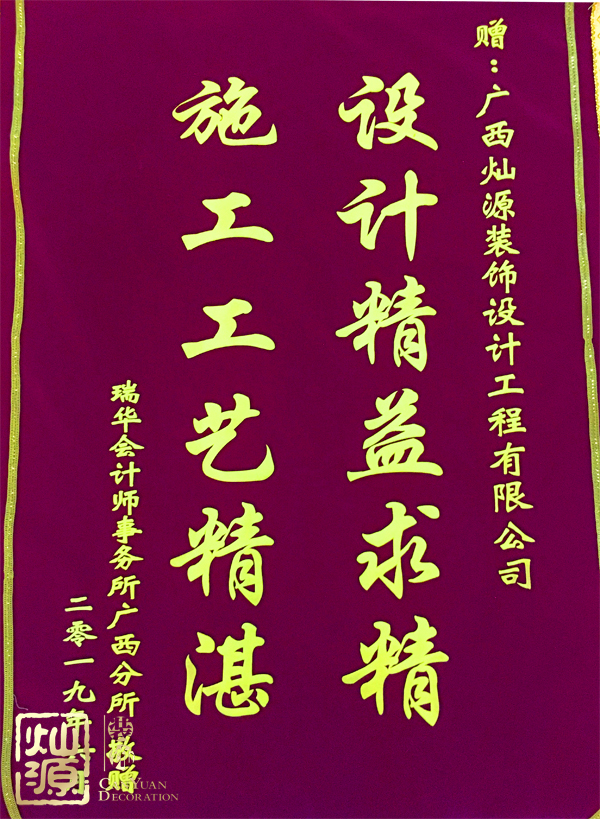 赠：广西灿源装饰设计工程有限公司
设计精益求精
施工工艺精湛
瑞华会计师事务所广西分所 敬赠
二零一九年
灿源
YUAN
DECORATION